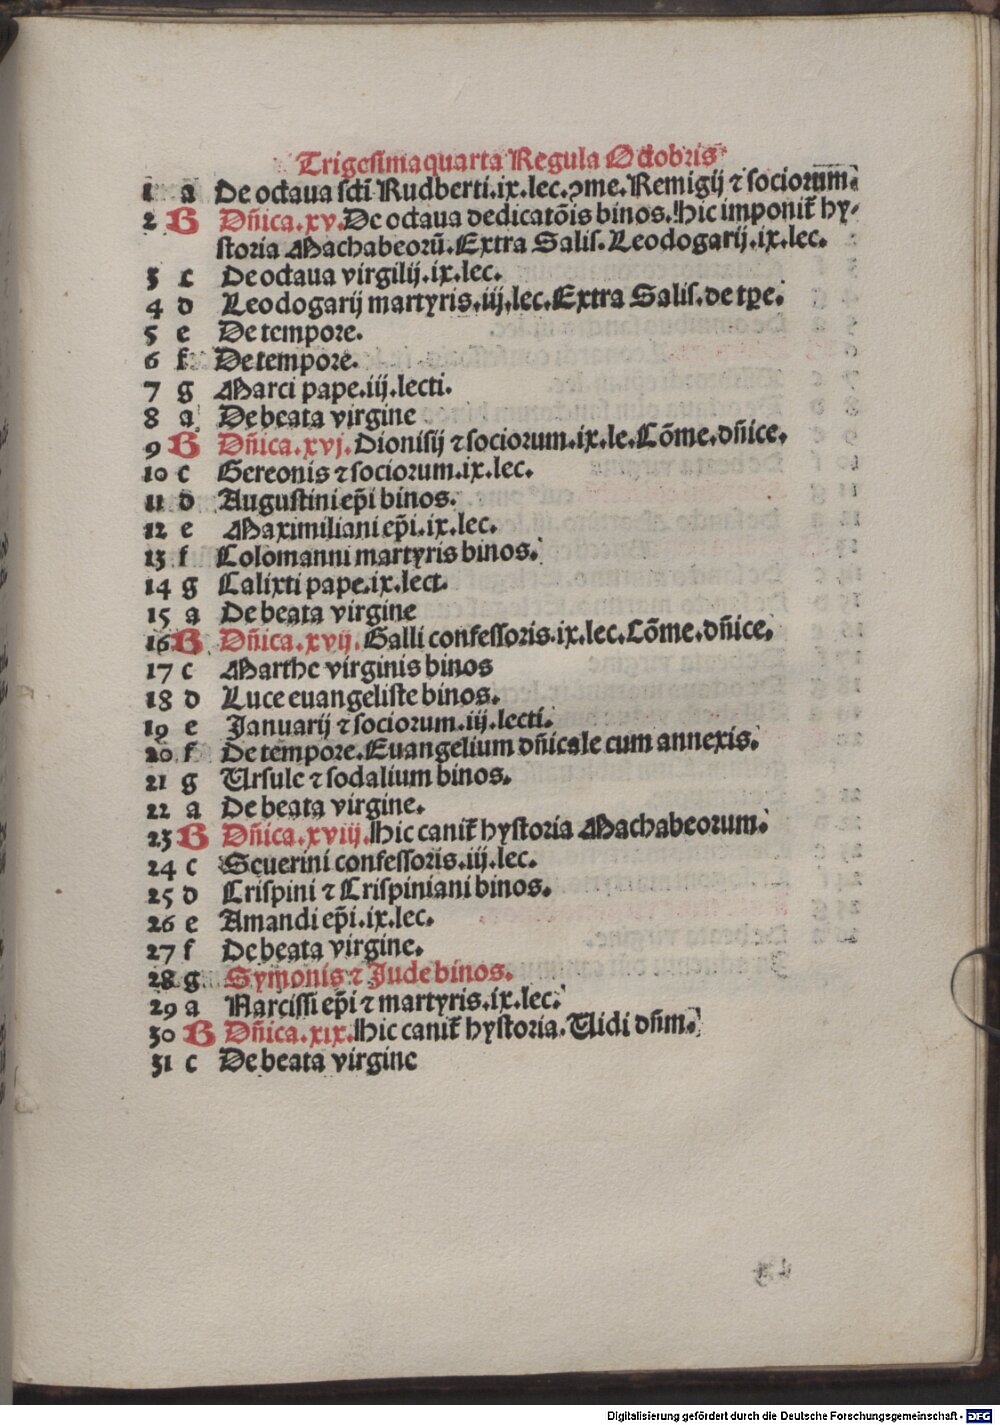 Trigesimaquarta Regula Octobris
1 a De octaua scti Rudberti.ix.lec.ꝯme.Remigij ⁊ sociorum.
2 B Dñica.xv.De octaua dedicatõis binos.Hic imponit̃ hy-
storia Machabeorũ.Extra Salis.Leodogarij.ix.lec.
3 c De octaua virgilij.ix.lec.
4 d Leodogarij martyris.iij.lec.Extra Salis.de tꝑe.
5 e De tempore.
6 f De tempore.
7 g Marci pape.iij.lecti.
8 a De beata virgine
9 B Dñica.xvj.Dionisij ⁊ sociorum.ix.le.Cõme.dñice.
10 c Gereonis ⁊ sociorum.ix.lec.
11 d Augustini ep̃i binos.
12 e Maximiliani ep̃i.ix.lec.
13 f Colomanni martyris binos.
14 g Calixti pape.ix.lect.
15 a De beata virgine
16 B Dñica.xvij.Galli confessoris.ix.lec.Cõme.dñice.
17 c Marthe virginis binos
18 d Luce euangeliste binos.
19 e Januarij ⁊ sociorum.iij.lecti.
20 f De tempore.Euangelium dñicale cum annexis.
21 g Ursule ⁊ sodalium binos.
22 a De beata virgine.
23 B Dñica.xviij.Hic canit̃ hystoria Machabeorum.
24 c Seuerini confessoris.iij.lec.
25 d Crispini ⁊ Crispiniani binos.
26 e Amandi ep̃i.ix.lec.
27 f De beata virgine.
28 g Symonis ⁊ Jude binos.
29 a Narcissi ep̃i ⁊ martyris.ix.lec.
30 B Dñica.xix.Hic canit̃ hystoria.Uidi dñm.
31 c De beata virgine
Digitalisierung gefördert durch die Deutsche Forschungsgemeinschaft - DFG